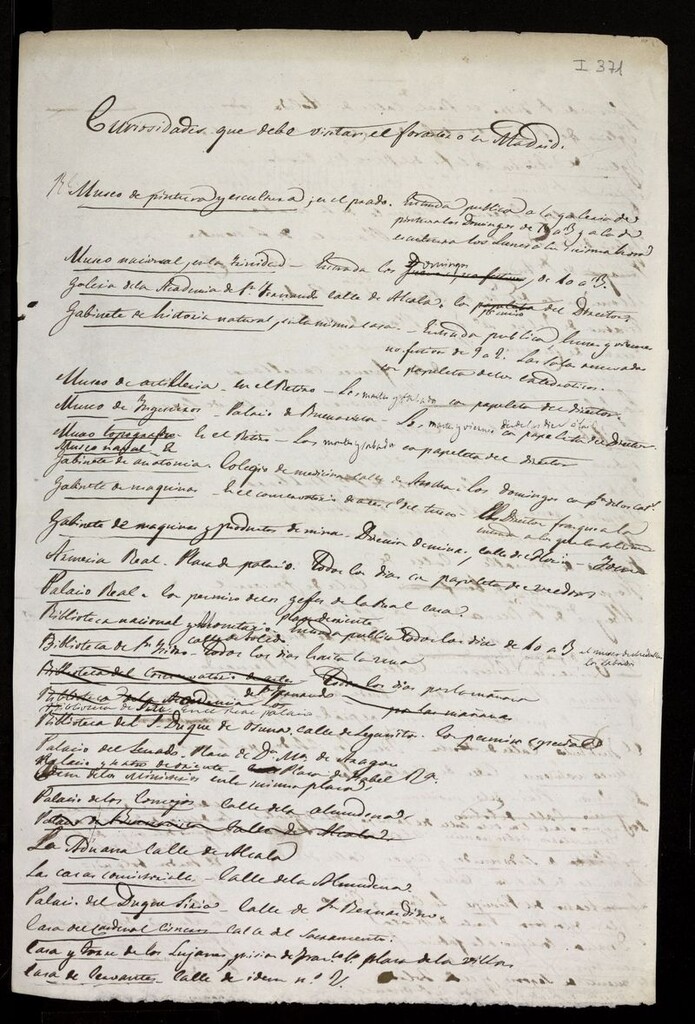 I 371
Curiosidades que debe visitar el forastero en Madrid.
Museo de pintura y escultura, en el prado. Entrada publica a la galeria de
pintura los Domingos de 10 a 3 y a la de
escultura los Lunes a la misma hora
Museo nacional, en la Trinidad - Entrada los Domingos de 10 a 3.
Galeria de la Academia de Sn. Fernando calle de Alcala. Con del Director.
Gabinete de historia natural, en la misma casa. - Entrada publica, lunes y viernes
no festivos de 9 a 2. Las salas
con papeleta de los catedraticos.
Museo de artilleria. en el Retiro - Los martes y sabado con papeleta del director.
Museo de Ingenieros - Palacio de Buenavista - Los martes y viernes con papeleta del director.
Museo topografico. En el Retiro - Los martes y sabado con papeleta del director
Museo naval
Gabinete de anatomia. Colegio de medicina calle de Atocha: los domingos con
Gabinete de maquinas - En el conservatorio de artes, El Director franquea la
entrada a los
Gabinete de maquinas y productos de minas. Direccion de minas, calle del Florin - Idem
Armeria Real. Plaza de palacio. Todos los dias con papeleta del
Palacio Real - Con permiso de los gefes de la Real casa.
Biblioteca nacional y monetario, plaza de oriente entrada publica todos los dias de 10 a 3 el museo de
los sabados
Biblioteca de Sn. Isidro calle de Toledo Todos los dias hasta la una
Biblioteca del Conservatorio de artes Todos los dias por la mañana
Biblioteca de la Academia de Sn. Fernando Los por las mañanas
Biblioteca de en el real palacio
Biblioteca del Sr. Duque de Osuna, calle de Leganitos. Con permiso especial
Palacio del Senado. Plaza de Da. Ma. de Aragon
Palacio y teatro de oriente - Plaza de Isabel 2a.
Idem de los Ministerios en la misma plaza
Palacio de los Consejos - calle de la almudena
Palacio de Buenavista - Calle de Alcala
La Aduana calle de Alcala
Las casas consistoriales - Calle de la Almudena
Palacio del Duque de Liria - Calle de Sn. Bernardino.
Casa del cardenal Cisneros calle del Sacramento.
Casa y Torre de los Lujanes, prision de Franco. 1o. plaza de la villa
Casa de Cervantes. Calle de idem no. 2.